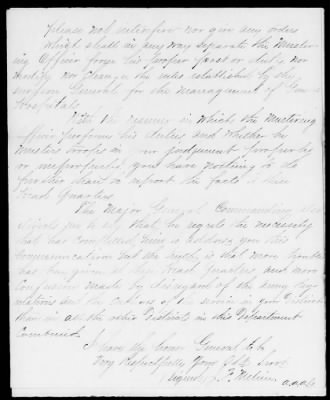 please not interfere nor give any orders
which shall in any way separate the Muster
ing Officer from his proper post or duties nor
modify nor change the rules established by the
Surgeon General for the management of Gen'l
Hospitals
With the manner in which the Mustering
officer performs his duties and whether he
musters troops in your judgment properly
or improperly you have nothing to do
further than to report the facts to these
Head Quarters
The Major General Commanding also
directs me to say that he regrets the necessity
that has compelled him to address you this
communication but the truth is that more trouble
has been given at these Head Quarters and more
confusion made by disregard of the army reg
ulations and the customs of the service in your District
than in all the other Districts in this Department
Combined
I have the honor General to be
Very Respectfully Your Obt Servt
(signed)
a.a.a.G.